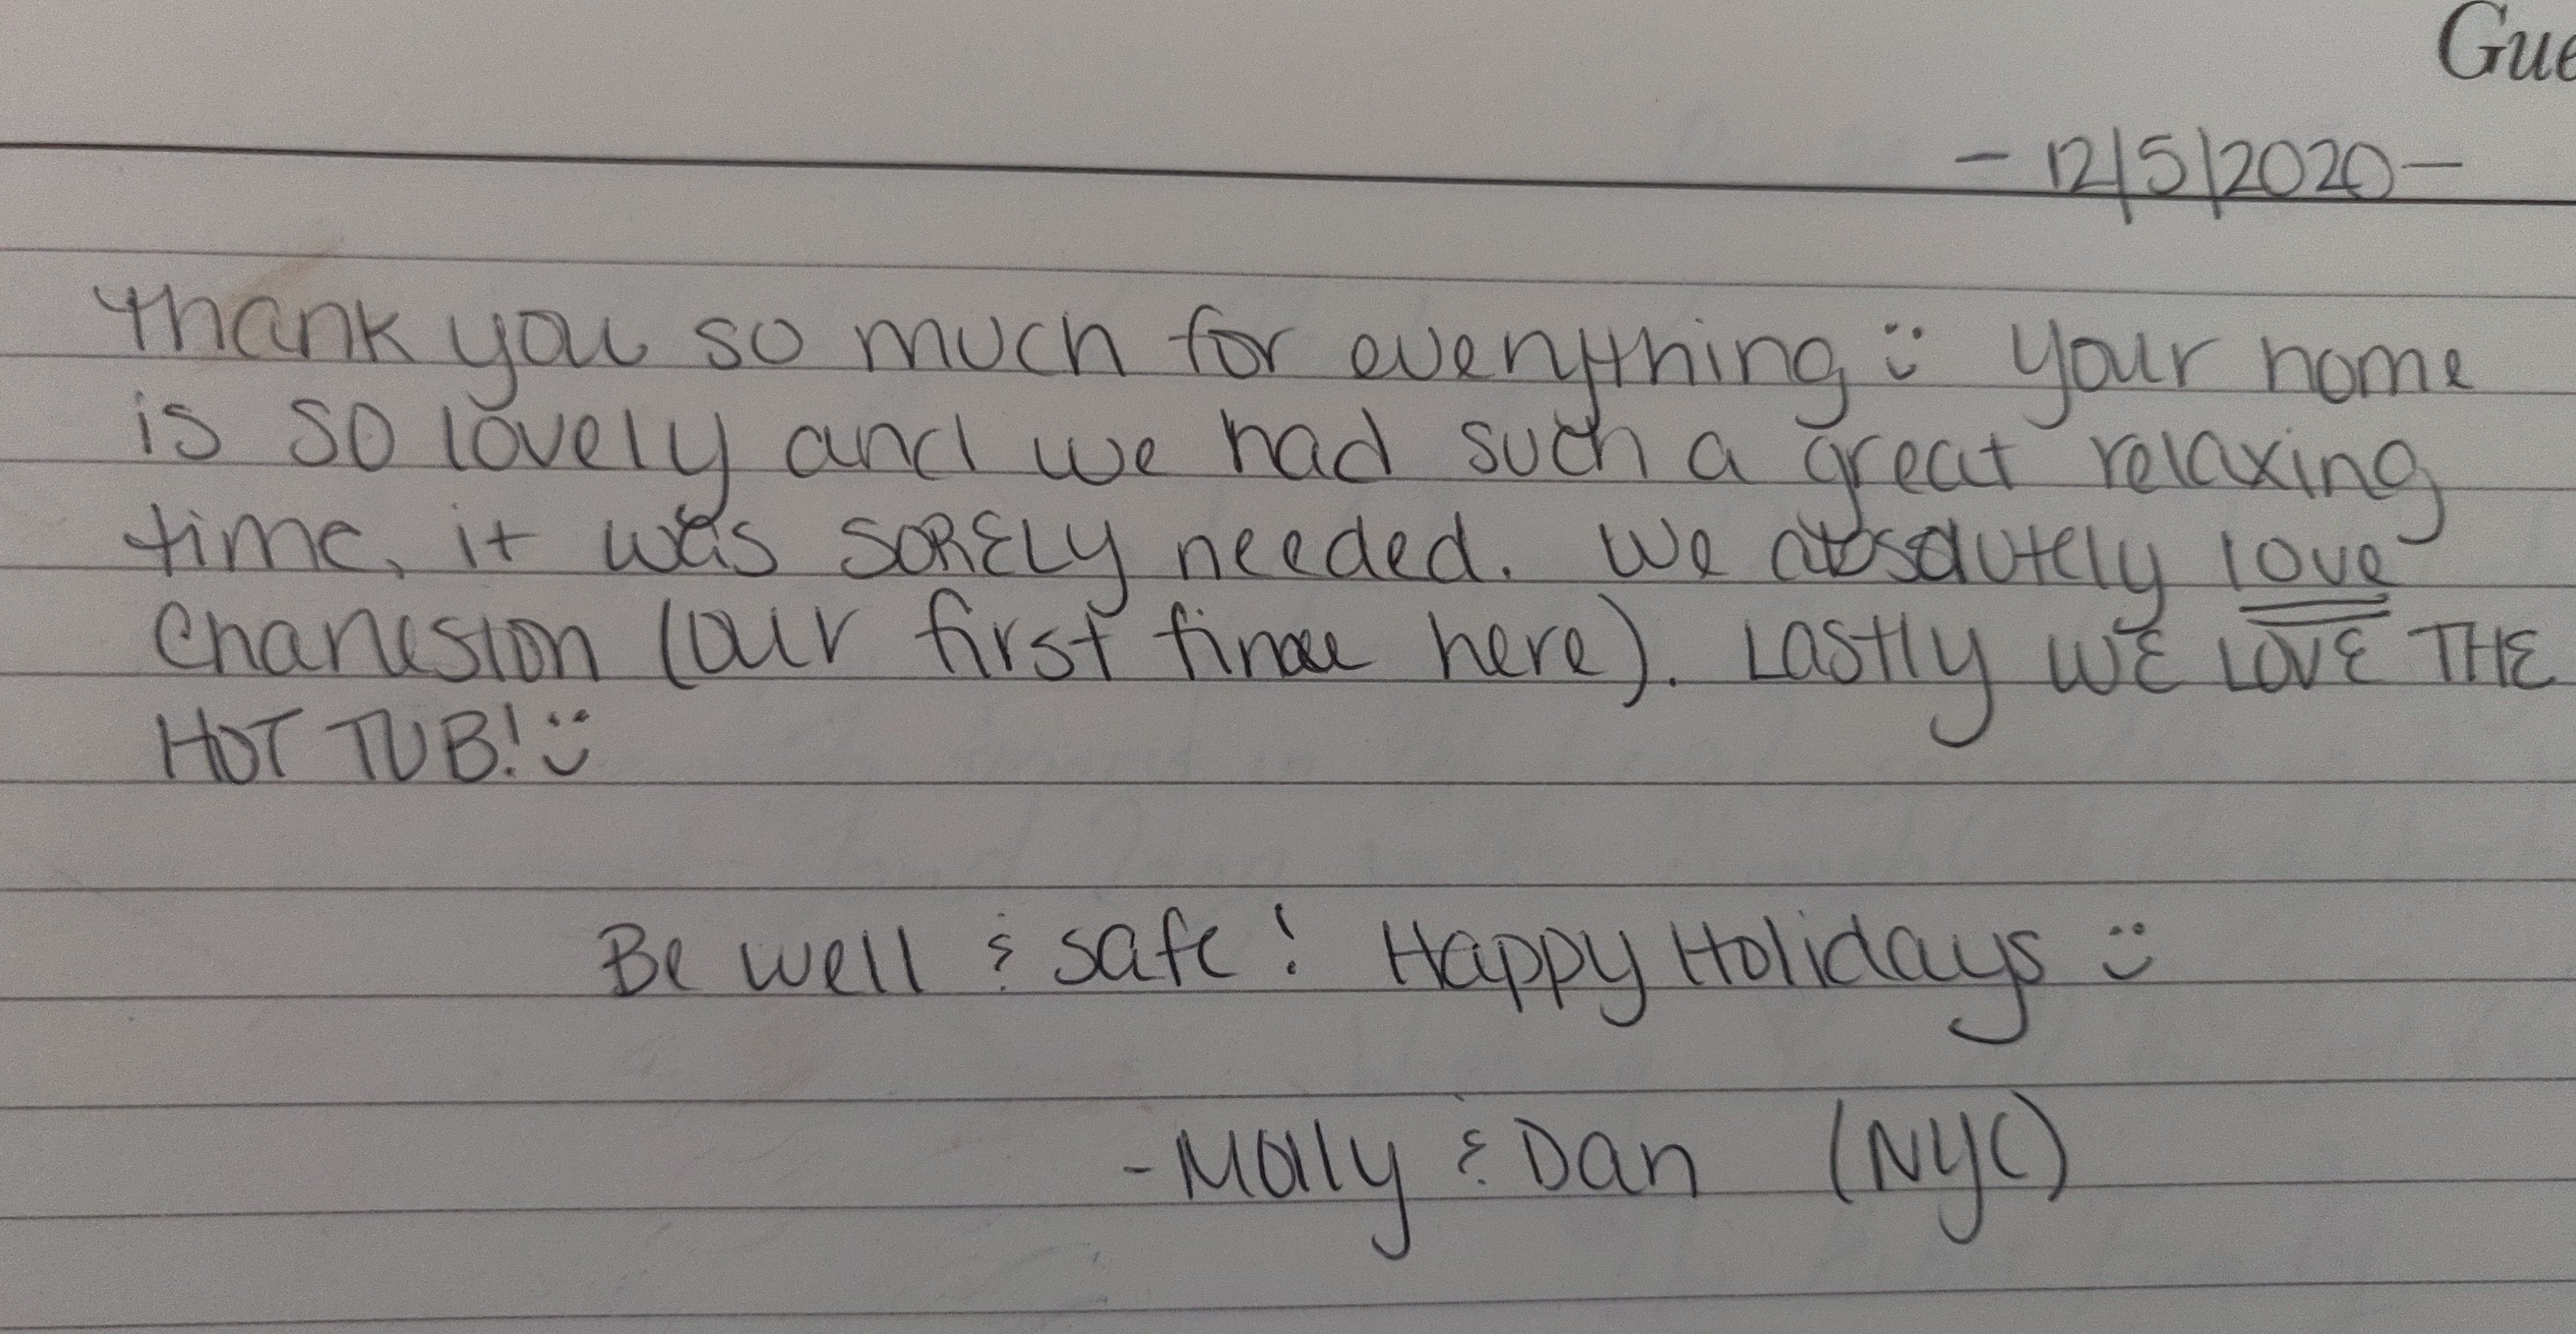 Gue
- 12/5/2020 -
Thank you so much for everything :) Your home
is so lovely and we had such a great relaxing
time, it was SORELY needed. We absolutely love
Charleston (our first time here). Lastly WE LOVE THE
HOT TUB! :)
Be well & safe! Happy Holidays :)
- Molly & Dan (NYC)